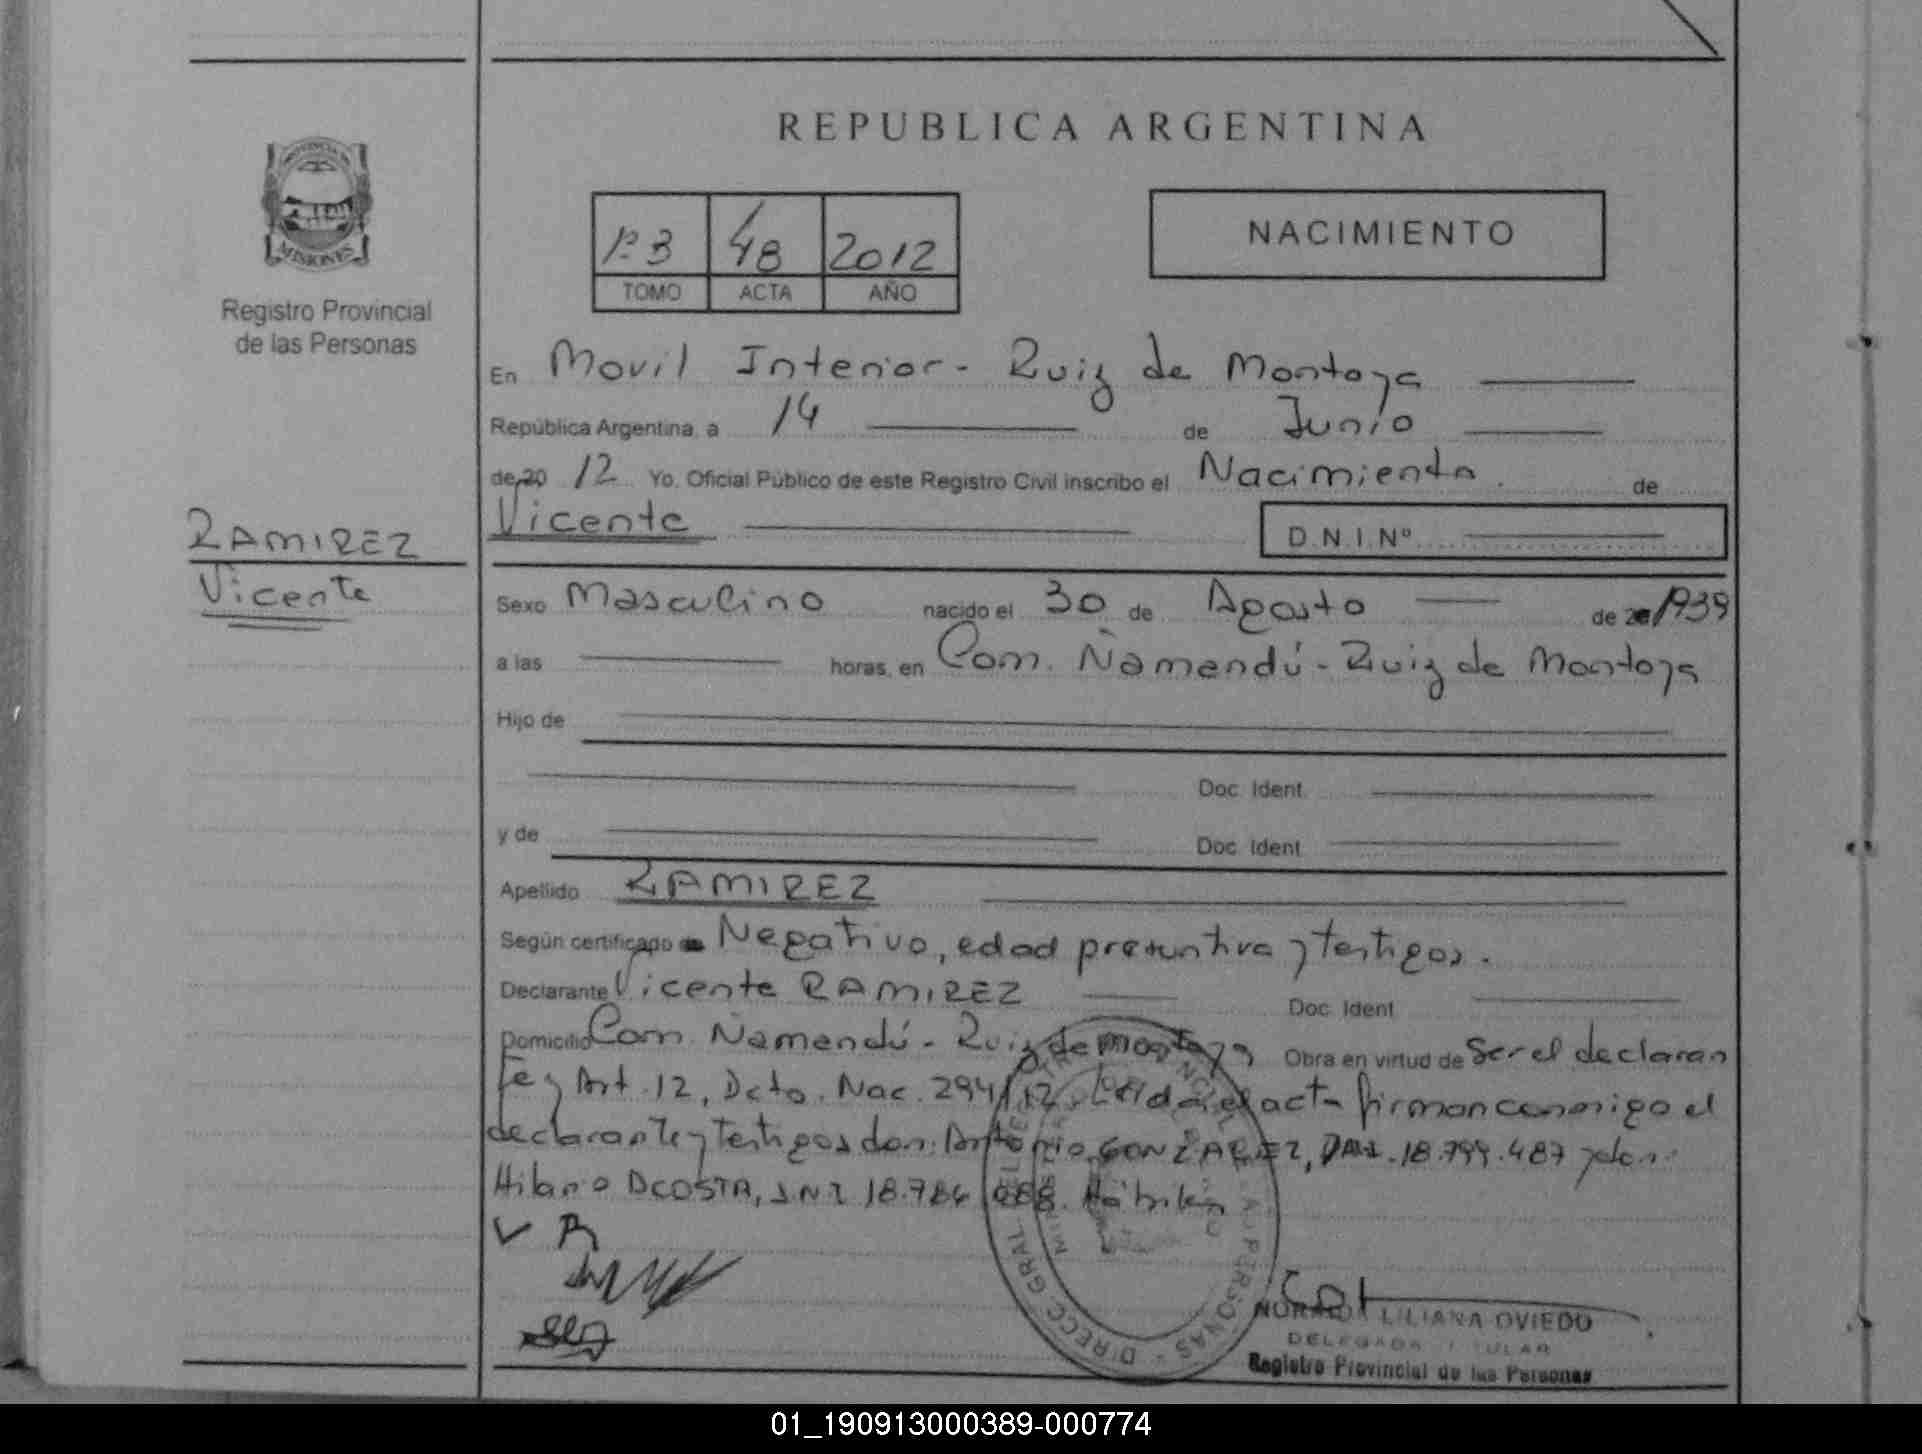 REPUBLICA ARGENTINA
PROVINCIA DE
MISIONES
Registro Provincial
de las Personas
1º 3 48 2012
TOMO ACTA AÑO
NACIMIENTO
En Movil Interior - Ruiz de Montoya
República Argentina, a 14 de Junio
de 20 12 Yo, Oficial Público de este Registro Civil inscribo el Nacimiento de
Vicente D.N.I.Nº
RAMIREZ
Vicente
Sexo Masculino nacido el 30 de Agosto de 1939
a las horas, en Com. Ñamendú - Ruiz de Montoya
Hijo de
Doc. Ident.
y de Doc. Ident.
Apellido RAMIREZ
Según certificado Negativo, edad presuntiva y testigos.
Declarante Vicente RAMIREZ Doc. Ident.
Domicilio Com. Ñamendú - Ruiz de Montoya Obra en virtud de Ser el declaran
te y Art. 12, Dcto. Nac. 294/12. Leída el acta firman conmigo el
declarante y testigos don: Antonio GONZALEZ, DNI. 18.799.487 y don:
Hilario DCOSTA, DNI 18.784 Hábiles
V R
DIRECC. GRAL. PERSONAS
LILIANA OVIEDO
DELEGADA TITULAR
Registro Provincial de las Personas
01_190913000389-000774